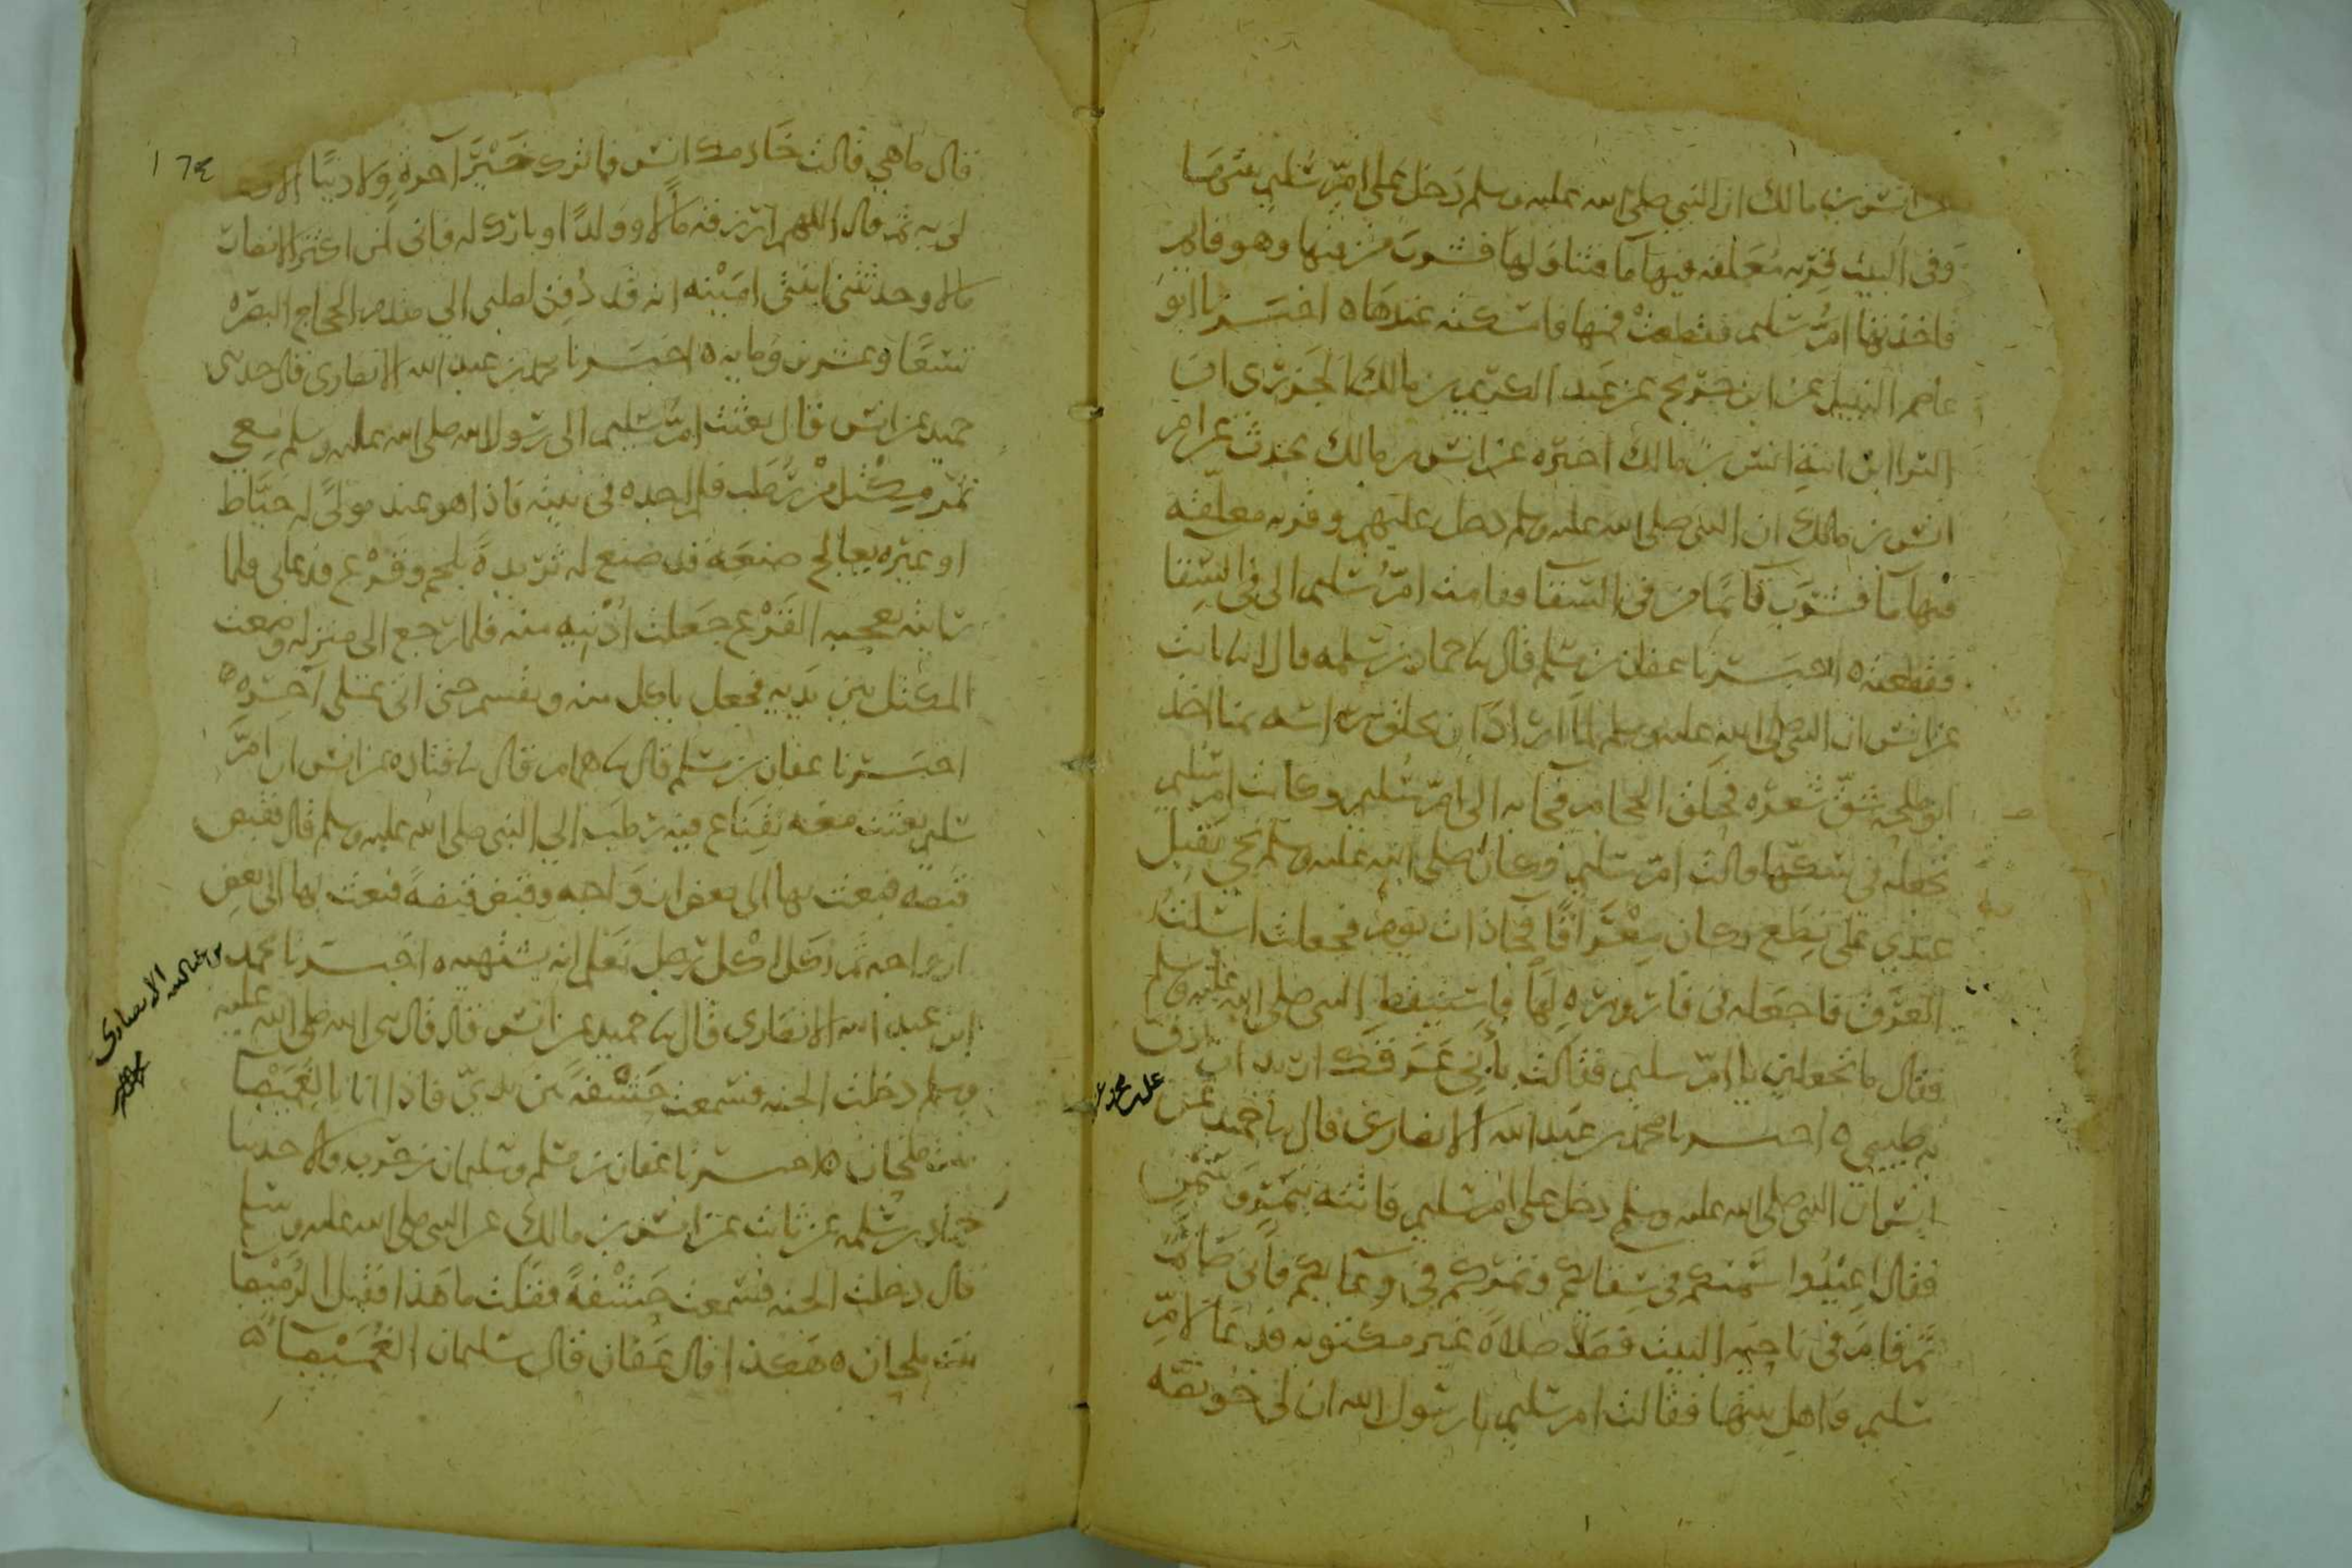 عن انس بن مالك ان النبي صلى الله عليه وسلم دخل على ام سليم بيتها
وفي البيت قربه معلقه فيها ما فتناولها فشرب من فيها وهو قايم
فاخذتها ام سليم فقطعت فمها فامسكته عندها ه اخبرنا ابو
عاصم النبيل عن ابن جريج عن عبد الكريم بن مالك الجزري ان
البرا ابن ابنة انس بن مالك اخبره عن انس بن مالك يحدث عن ام
انس بن مالك ان النبي صلى الله عليه وسلم دخل عليهم وقربه معلقه
فيها ما فشرب قايما من في السقا فقامت ام سليم الى في السقا
فقطعته ه اخبرنا عفان بن مسلم قال نا حماد بن سلمه قال انا ثابت
عن انس ان النبي صلى الله عليه وسلم لما اراد ان يحلق راسه بمنا اخذ
ابو طلحه شق شعره فحلق الحجام فجا به الى ام سليم وكانت ام سليم
تجعله في سكها قالت ام سليم وكان صلى الله عليه وسلم يجي يقيل
عندي على نطع وكان معراقا فجا ذات يوم فجعلت اسلت
العرق فاجعله في قاروره لها فاستيقظ النبي صلى الله عليه وسلم
فقال ما تجعلين يا ام سليم فقالت باقي عرقك اريد ان ادوف
به طيبي ه اخبرنا محمد بن عبد الله الانصاري قال نا حميد عن
انس ان النبي صلى الله عليه وسلم دخل على ام سليم فاتته بتمر وسمن
فقال اعيدوا سمنكم في سقايكم وتمركم في وعايكم فاني صايم
ثم قام في ناحيه البيت فصلا صلاة غير مكتوبه فدعا لام
سليم واهل بيتها فقالت ام سليم يا رسول الله ان لي خويصه
١٦٤
قال ما هي قالت خادمك انس فما ترك خير آخرة ولا دنيا الا دعا
لي به ثم قال اللهم ارزقه مالا وولدا وبارك له فاني لمن اكثر الانصار
مالا وحدثتني ابنتي امينه انه قد دفن لصلبي الى مقدم الحجاج البصره
تسعا وعشرين ومايه ه اخبرنا محمد بن عبد الله الانصاري قال حدثني
حميد عن انس قال بعثت ام سليم الى رسول الله صلى الله عليه وسلم معي
بمكتل من رطب فلم اجده في بيته فاذا هو عند مولى له خياط
او غيره يعالج صنعة قد صنع له ثريدة بلحم وقرع فدعاني فلما
رايته يعجبه القرع جعلت ادنيه منه فلما رجع الى منزله وضعت
المكتل بين يديه فجعل ياكل منه ويقسم حتى اتى على آخره ه
اخبرنا عفان بن مسلم قال نا همام قال نا قتاده عن انس ان ام
سليم بعثت معه بقناع فيه رطب الى النبي صلى الله عليه وسلم قال فقبض
قبضه فبعث بها الى بعض ازواجه وقبض قبضة فبعث بها الى بعض
ازواجه ثم اكل اكل رجل تعلم انه يشتهيه ه اخبرنا محمد
بن عبد الله الانصاري
ابن عبد الله الانصاري قال نا حميد عن انس قال قال نبي الله صلى الله عليه
وسلم دخلت الجنه فسمعت خشفة بين يدي فاذا انا بالغميصا
بنت ملحان ه اخبرنا عفان بن مسلم وسليمان بن حرب قالا حدثنا
حماد بن سلمه عن ثابت عن انس بن مالك عن النبي صلى الله عليه وسلم
قال دخلت الجنه فسمعت خشفة فقلت ما هذا فقيل الرميصا
بنت ملحان ه هكذا قال عفان قال سليمان الغميصا ه